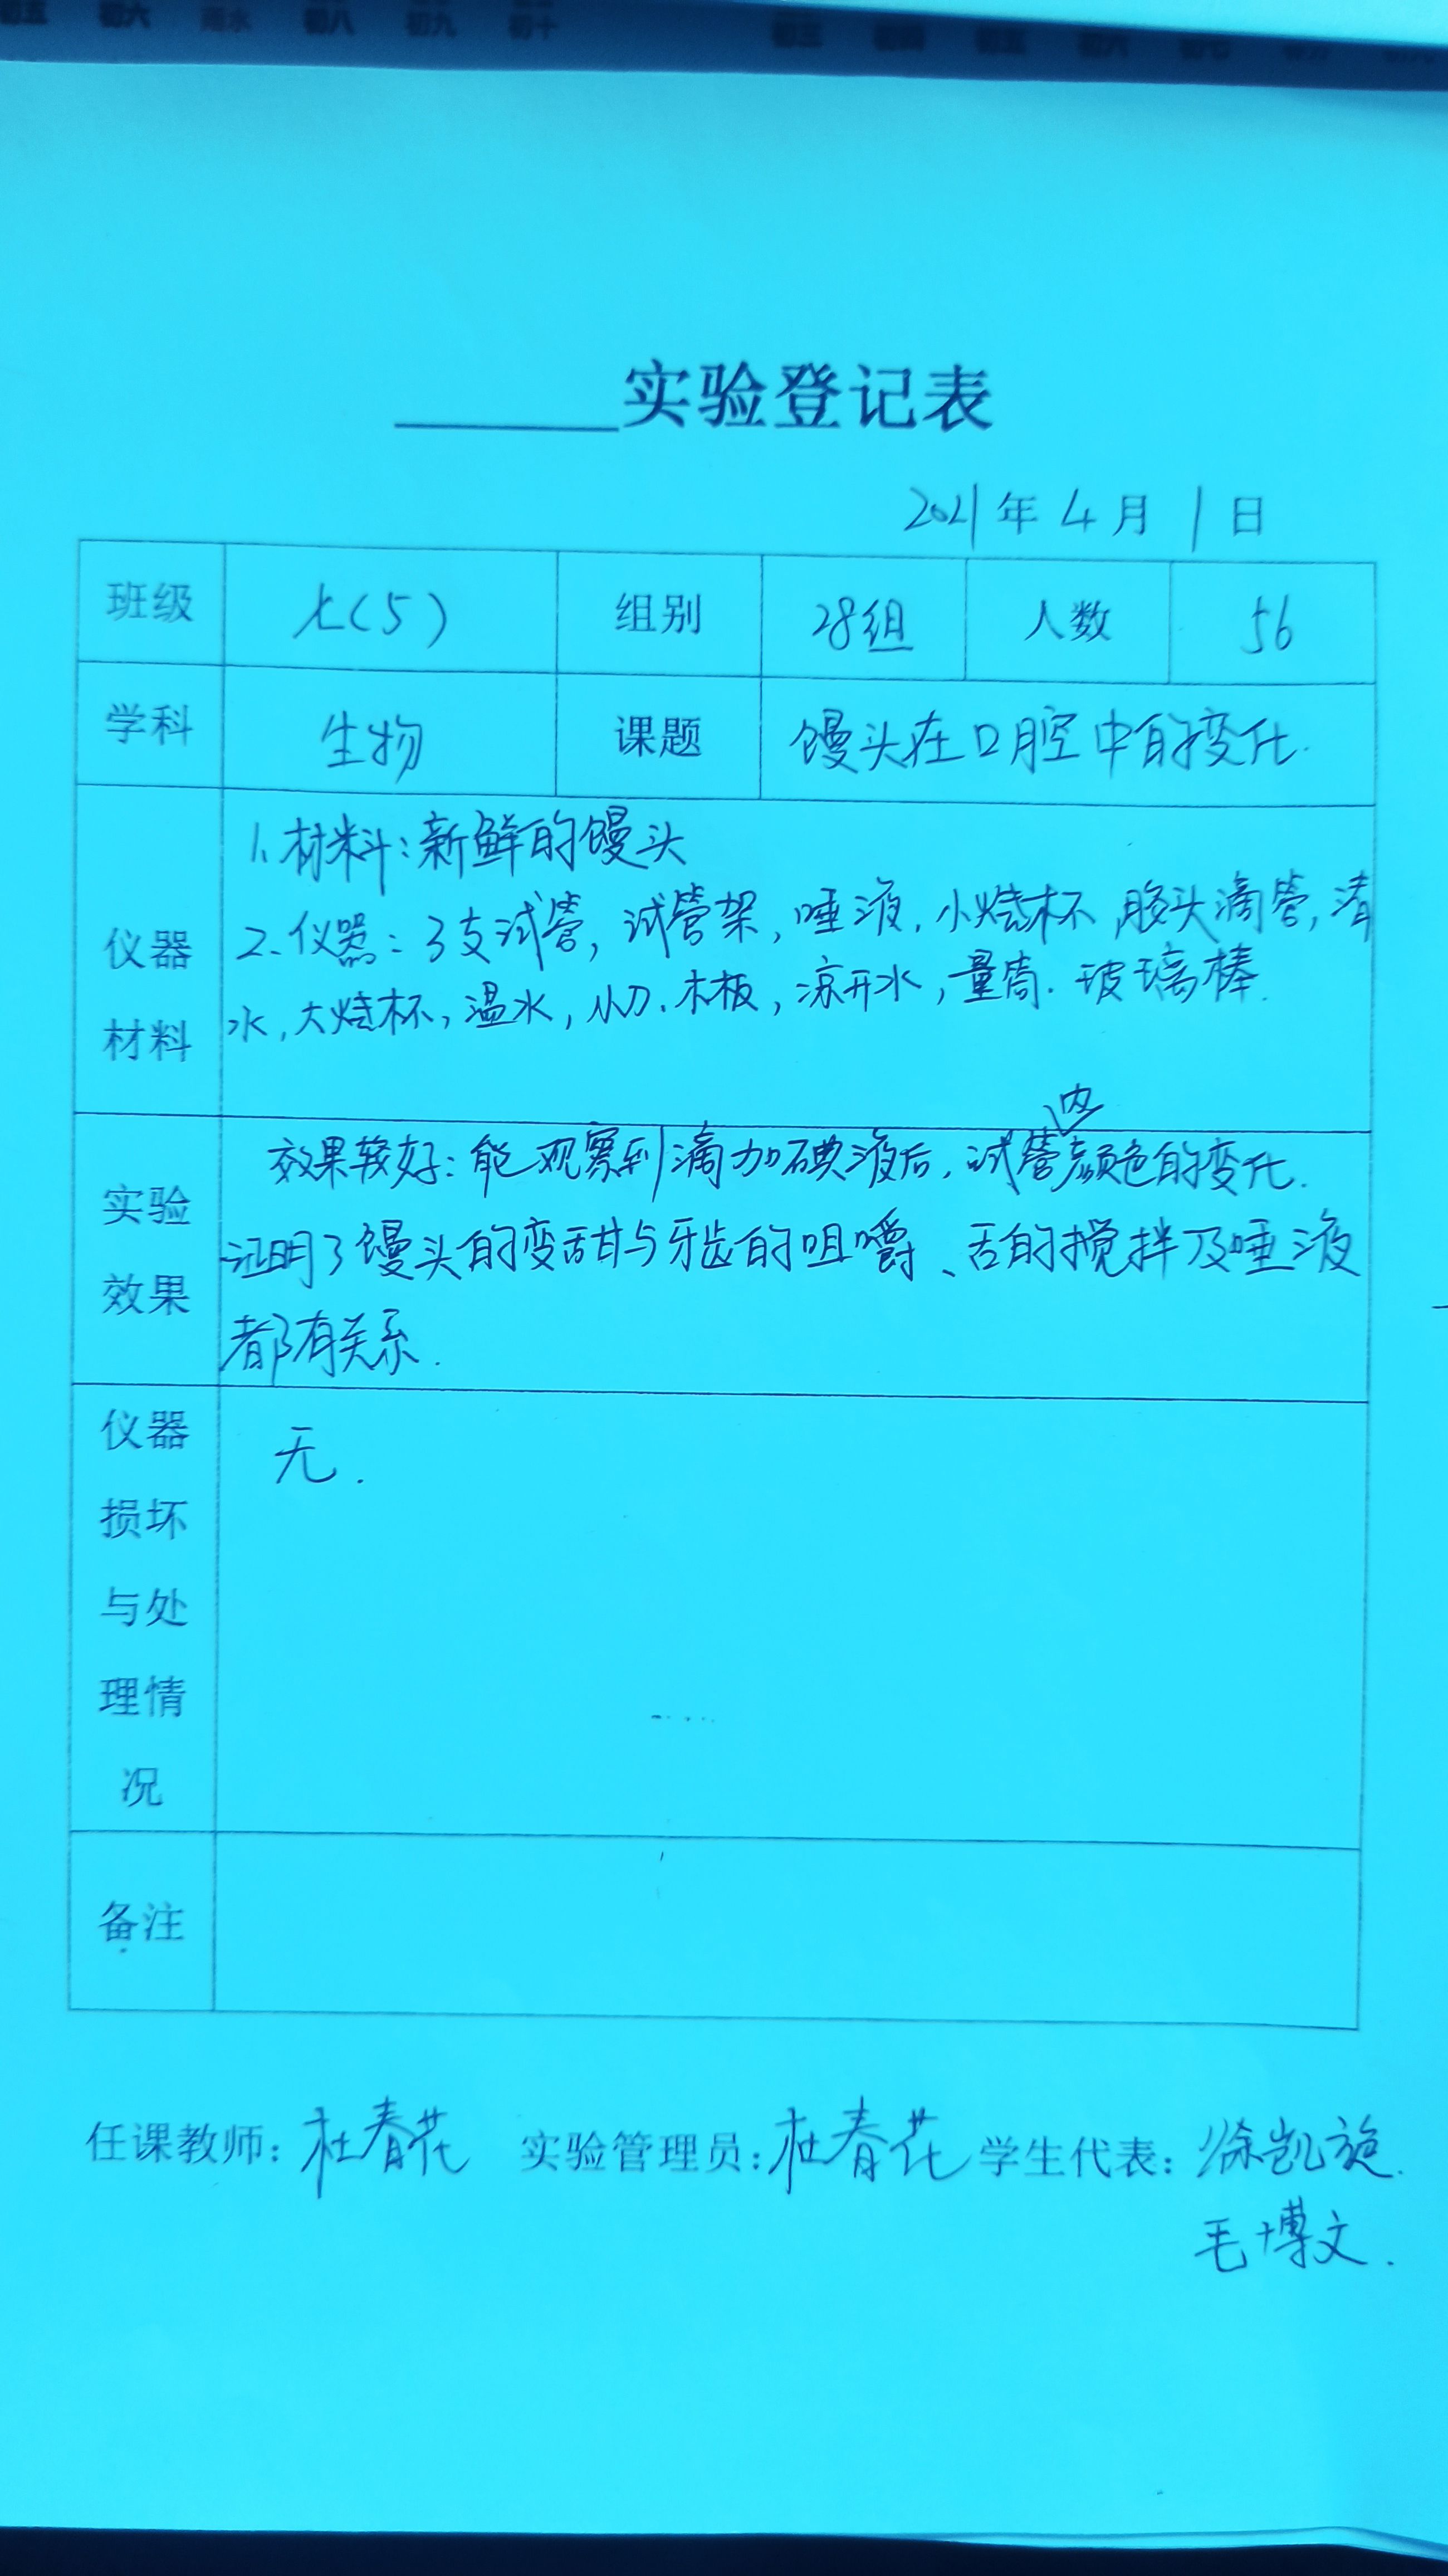 初五 初六 雨水 初八 初九 初十 初三 初四 初五 初六 初七
实验登记表
2021年4月1日
班级 七(5) 组别 28组 人数 56
学科 生物 课题 馒头在口腔中的变化.
仪器材料
1、材料:新鲜的馒头
2、仪器:3支试管,试管架,唾液,小烧杯,胶头滴管,清
水,大烧杯,温水,小刀、木板,凉开水,量筒.玻璃棒.
实验效果
效果较好:能观察到滴加碘液后,试管内颜色的变化.
证明了馒头的变甜与牙齿的咀嚼、舌的搅拌及唾液
都有关系.
仪器损坏与处理情况
无.
备注
任课教师:杜春花 实验管理员:杜春花 学生代表:徐凯旋.
毛博文.